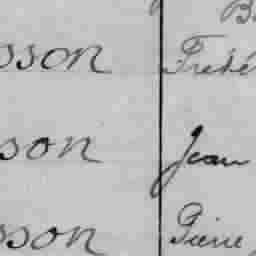 sson Fredé
sson Jean
sson Pierre